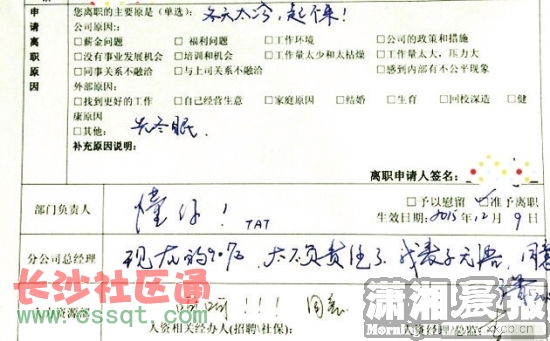 申请离职原因
您离职的主要原是(单选): 冬天太冷,起不来!
公司原因:
□薪金问题 □福利问题 □工作环境 □公司的政策和措施
□没有事业发展机会 □培训和机会 □工作量太少和太枯燥 □工作量太大,压力大
□同事关系不融洽 □与上司关系不融洽 □感到内部有不公平现象
外部原因:
□找到更好的工作 □自己经营生意 □家庭原因 □结婚 □生育 □回校深造 □健
康原因
□其他: 冬眠.
补充原因说明:
离职申请人签名:
部门负责人 懂你! TAT
□予以慰留 准予离职
生效日期: 2015年12月9日
分公司总经理 现在的90后,太不负责任了,我表示无语,同意
人力资源部 呵呵!!! 同意
人资相关经办人(招聘\社保): 人资经理\总监:
长沙社区通
www.cssqt.com
潇湘晨报